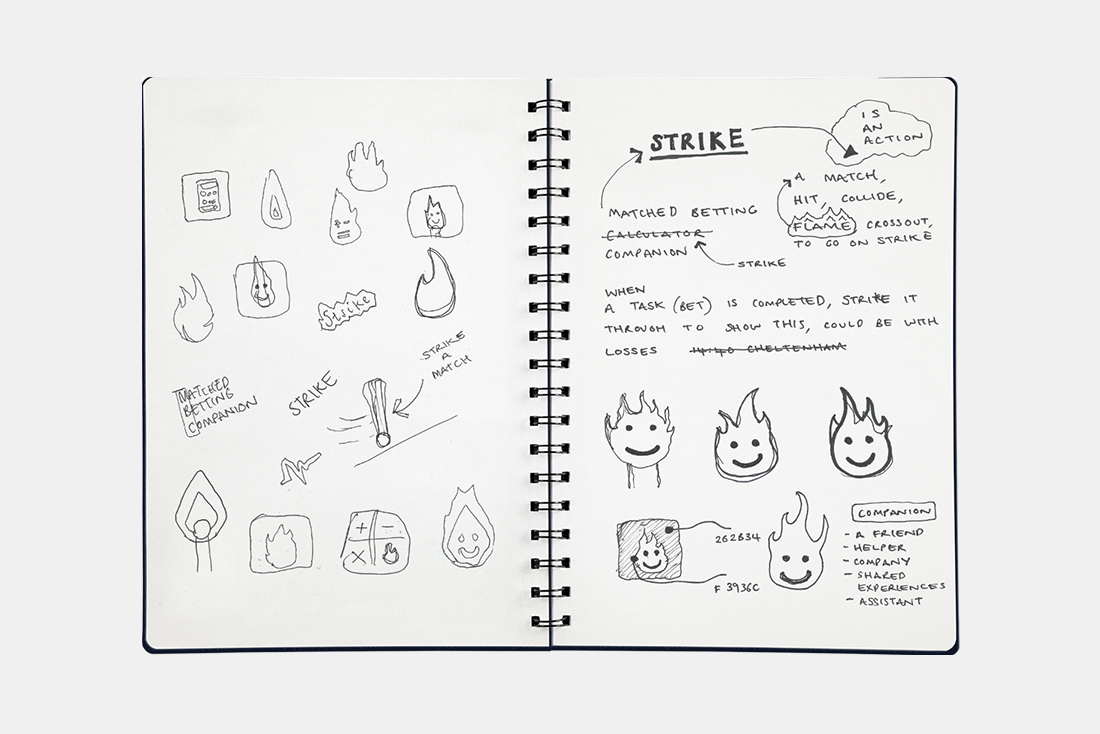 Strike
STRIKE
A
MATCH
MATCHED
BETTING
COMPANION
STRIKE
+ -
×
STRIKE
IS
AN
ACTION
A MATCH,
HIT, COLLIDE,
FLAME CROSSOUT,
TO GO ON STRIKE
MATCHED BETTING
CALCULATOR
COMPANION
STRIKE
WHEN
A TASK (BET) IS COMPLETED, STRIKE IT
THROUGH TO SHOW THIS, COULD BE WITH
LOSSES 14:40 CHELTENHAM
262B34
F3936C
COMPANION
- A FRIEND
- HELPER
- COMPANY
- SHARED
EXPERIENCES
- ASSISTANT